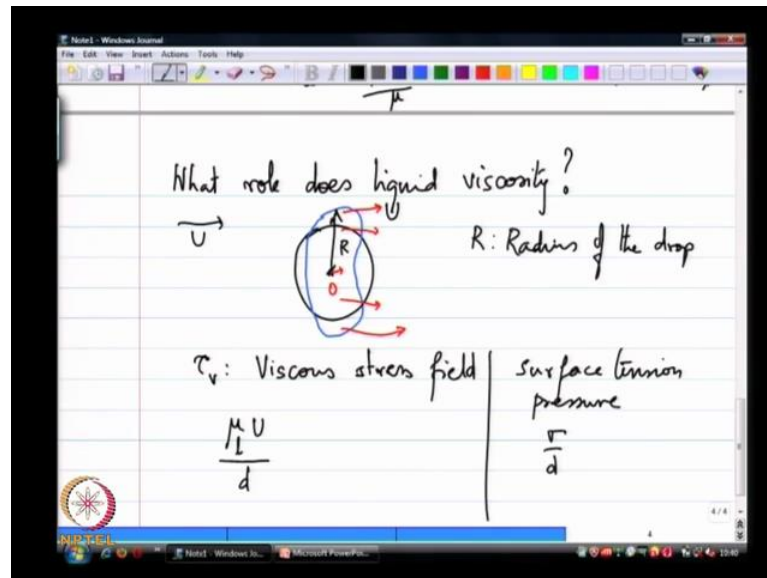 Note1 - Windows Journal
File Edit View Insert Actions Tools Help
μ
What role does liquid viscosity?
U
U
R
O
R: Radius of the drop
τv: Viscous stress field
surface tension
pressure
μL U
d
σ
d
4/4
4
NPTEL
Note1 - Windows Jo...
Microsoft PowerPoi...
10:40